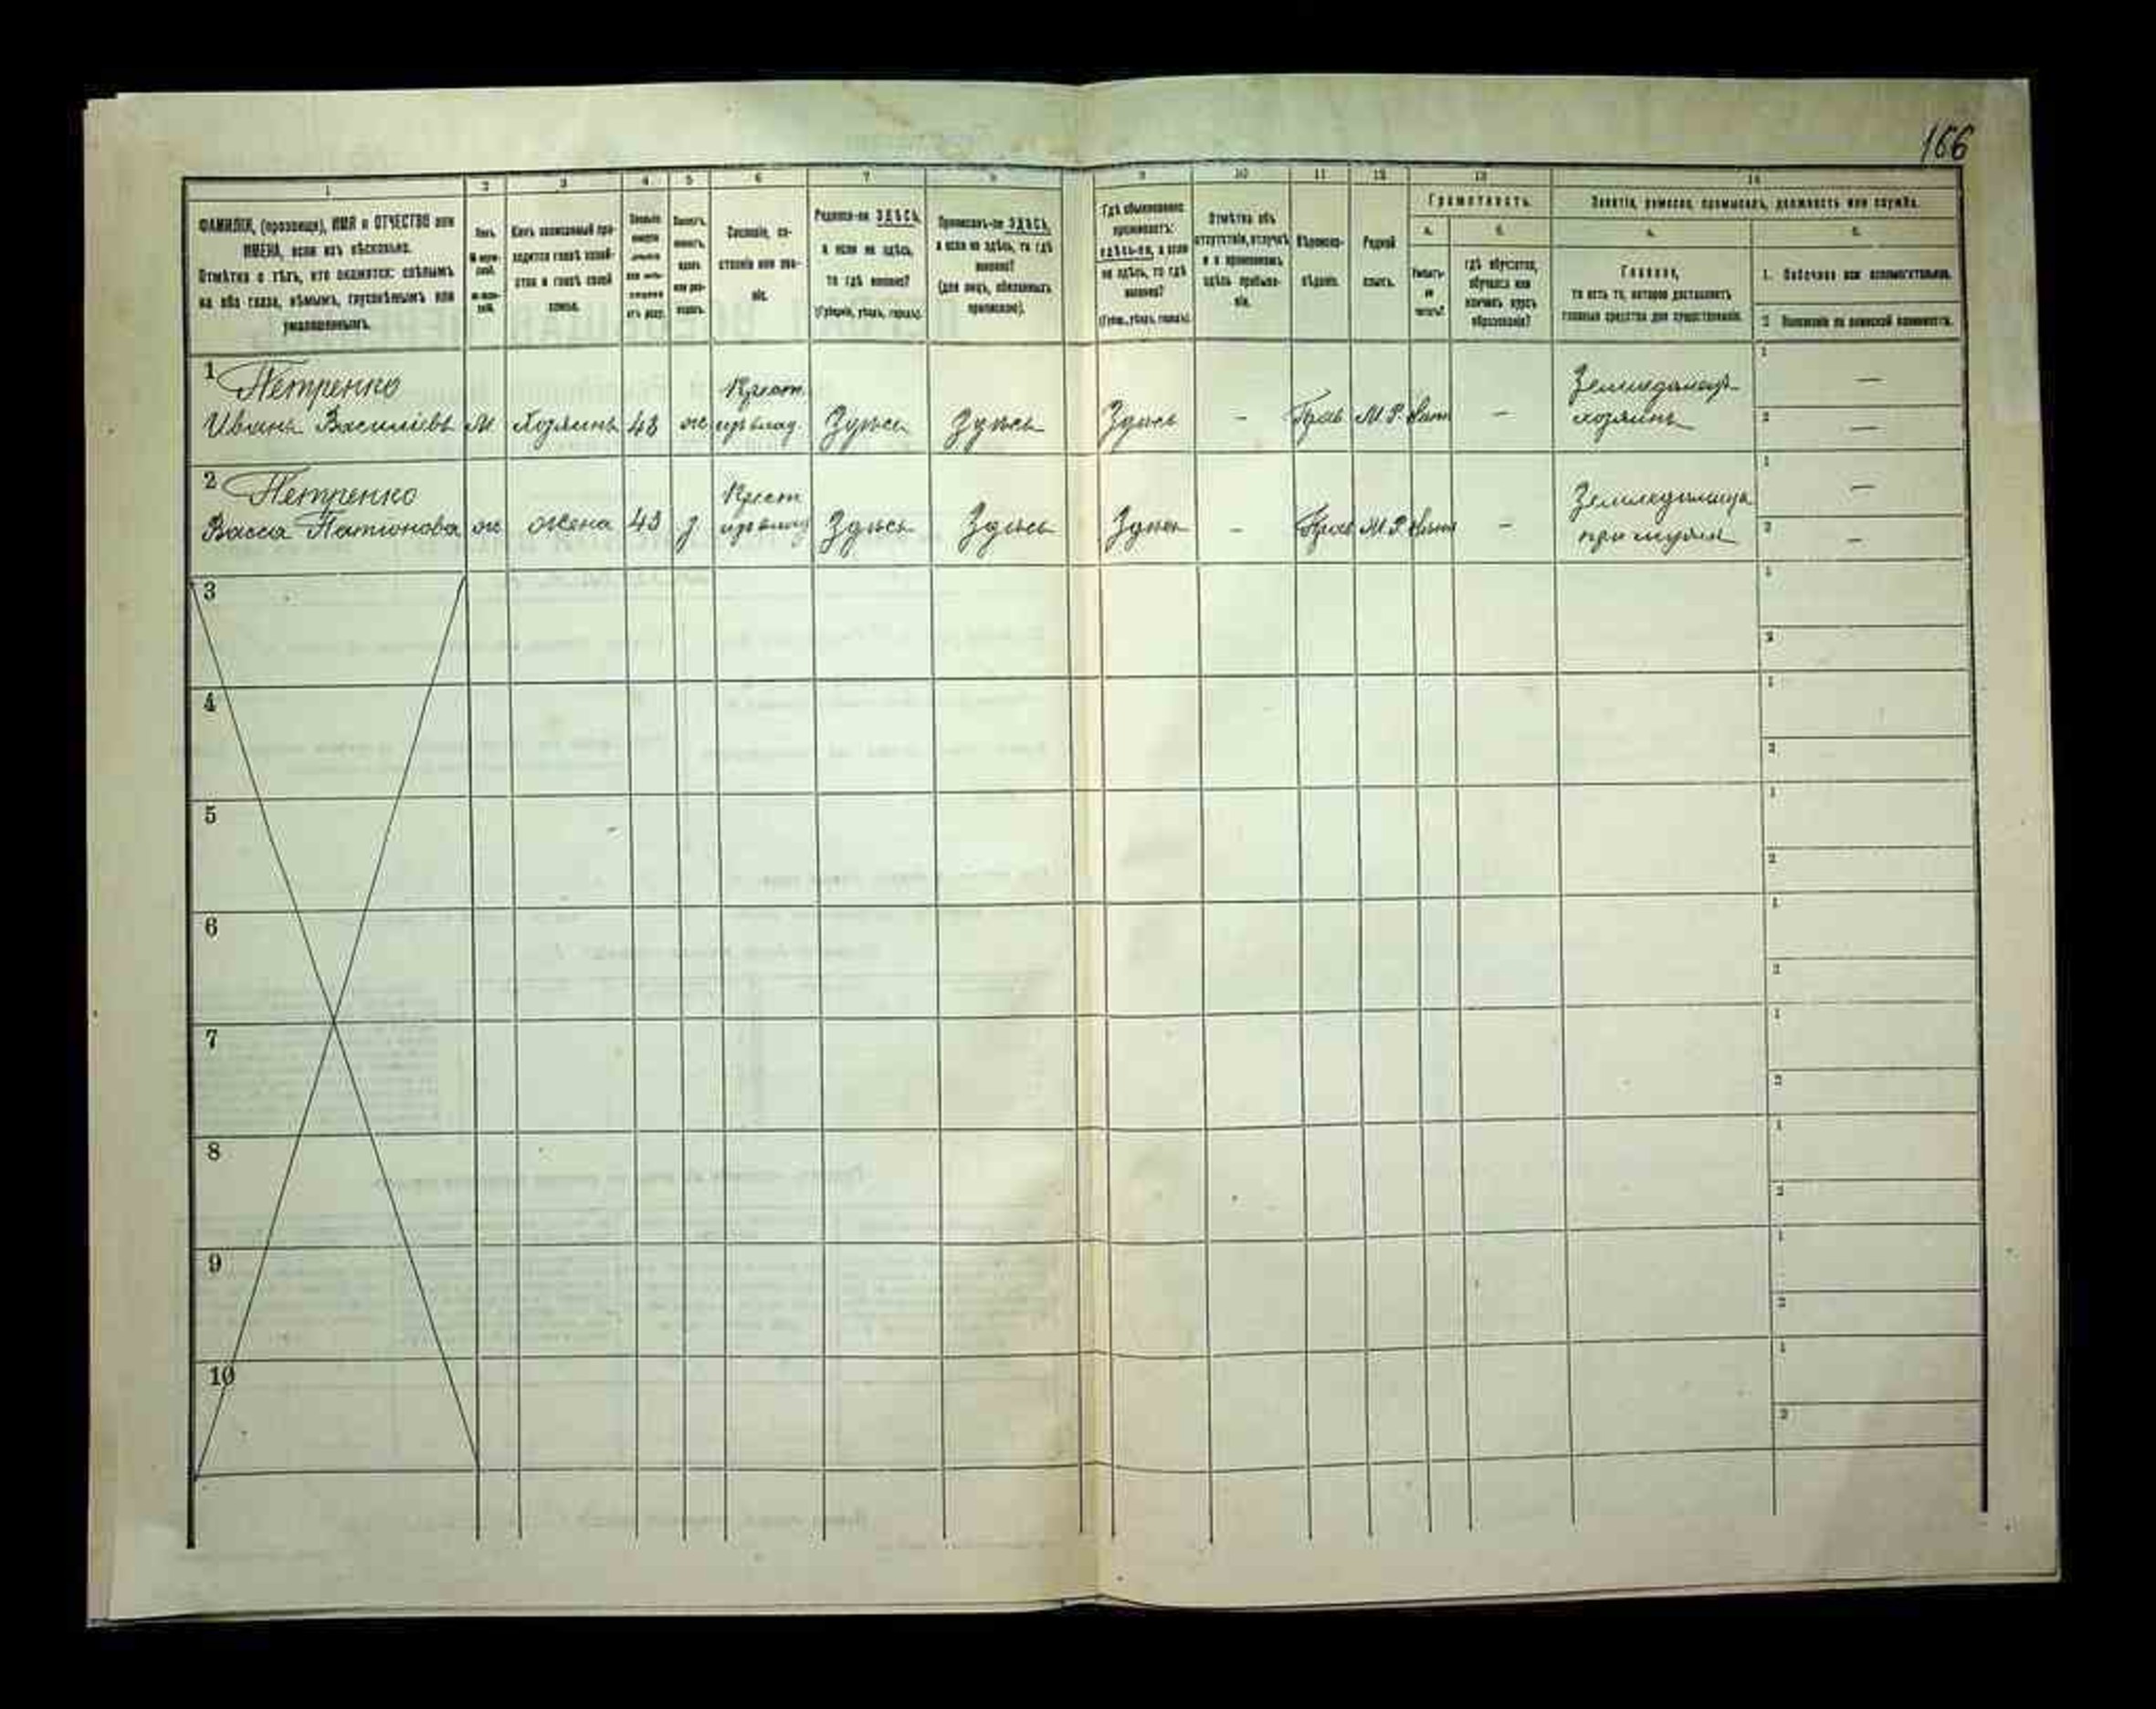 166
1 2 3 4 5 6 7 8 9 10 11 12 13 14
ФАМИЛІЯ, (прозвище), ИМЯ и ОТЧЕСТВО или
ИМЕНА, если ихъ нѣсколько.
Отмѣтка о тѣхъ, кто окажется: слѣпымъ
на оба глаза, нѣмымъ, глухонѣмымъ или
умалишеннымъ.
Полъ.
Какъ записанный при-
ходится главѣ хозяй-
ства и главѣ своей
семьи.
Сословіе, со-
стояніе или зва-
ніе.
Родился-ли ЗДѢСЬ,
а если не здѣсь,
то гдѣ именно?
(Губернія, уѣздъ, городъ).
Приписанъ-ли ЗДѢСЬ,
а если не здѣсь, то гдѣ
именно?
(для лицъ, обязанныхъ
припискою).
Гдѣ обыкновенно
проживаетъ:
здѣсь-ли, а если
не здѣсь, то гдѣ
именно?
(Губ., уѣздъ, городъ).
Отмѣтка объ
отсутствіи, отлучкѣ
и о временномъ
здѣсь пребыва-
ніи.
Вѣроиспо-
вѣданіе.
Родной
языкъ.
Грамотность.
а. б.
Умѣетъ-
ли
читать?
гдѣ обучается,
обучался или
кончилъ курсъ
образованія?
Занятіе, ремесло, промыселъ, должность или служба.
а. б.
Главное,
то есть то, которое доставляетъ
главныя средства для существованія.
1. Побочное или вспомогательное.
2. Положеніе по воинской повинности.
1 Петренко Крест.
Иванъ Васильевъ М Хозяинъ 43 ж изъ влад. Здѣсь Здѣсь Здѣсь – Прав М.Р. – хозяинъ 1 — 2 —
2 Петренко Крест
Васса ж жена 43 з изъ влад Здѣсь Здѣсь Здѣсь – Прав М.Р. – Земледѣлица при мужѣ 1 — 2 —
3 1 2
4 1 2
5 1 2
6 1 2
7 1 2
8 1 2
9 1 2
10 1 2